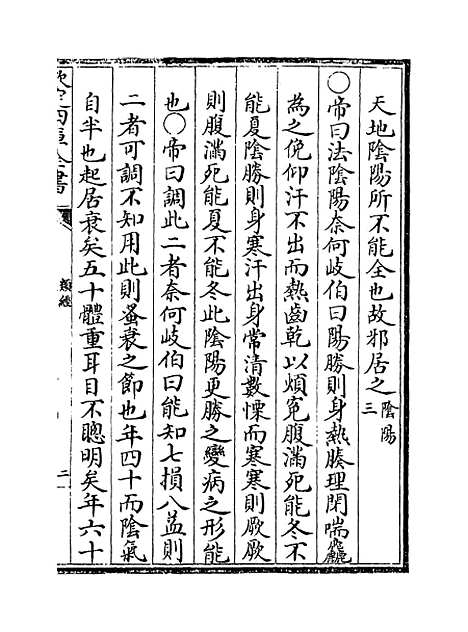 天地陰陽所不能全也故邪居之陰陽三
○帝曰法陰陽奈何岐伯曰陽勝則身熱腠理閉喘麤
為之俛仰汗不出而熱齒乾以煩寃腹滿死能冬不
能夏陰勝則身寒汗出身常清數慄而寒寒則厥厥
則腹滿死能夏不能冬此陰陽更勝之變病之形能
也○帝曰調此二者奈何岐伯曰能知七損八益則
二者可調不知用此則蚤衰之節也年四十而陰氣
自半也起居衰矣五十體重耳目不聰明矣年六十
欽定四庫全書
類經